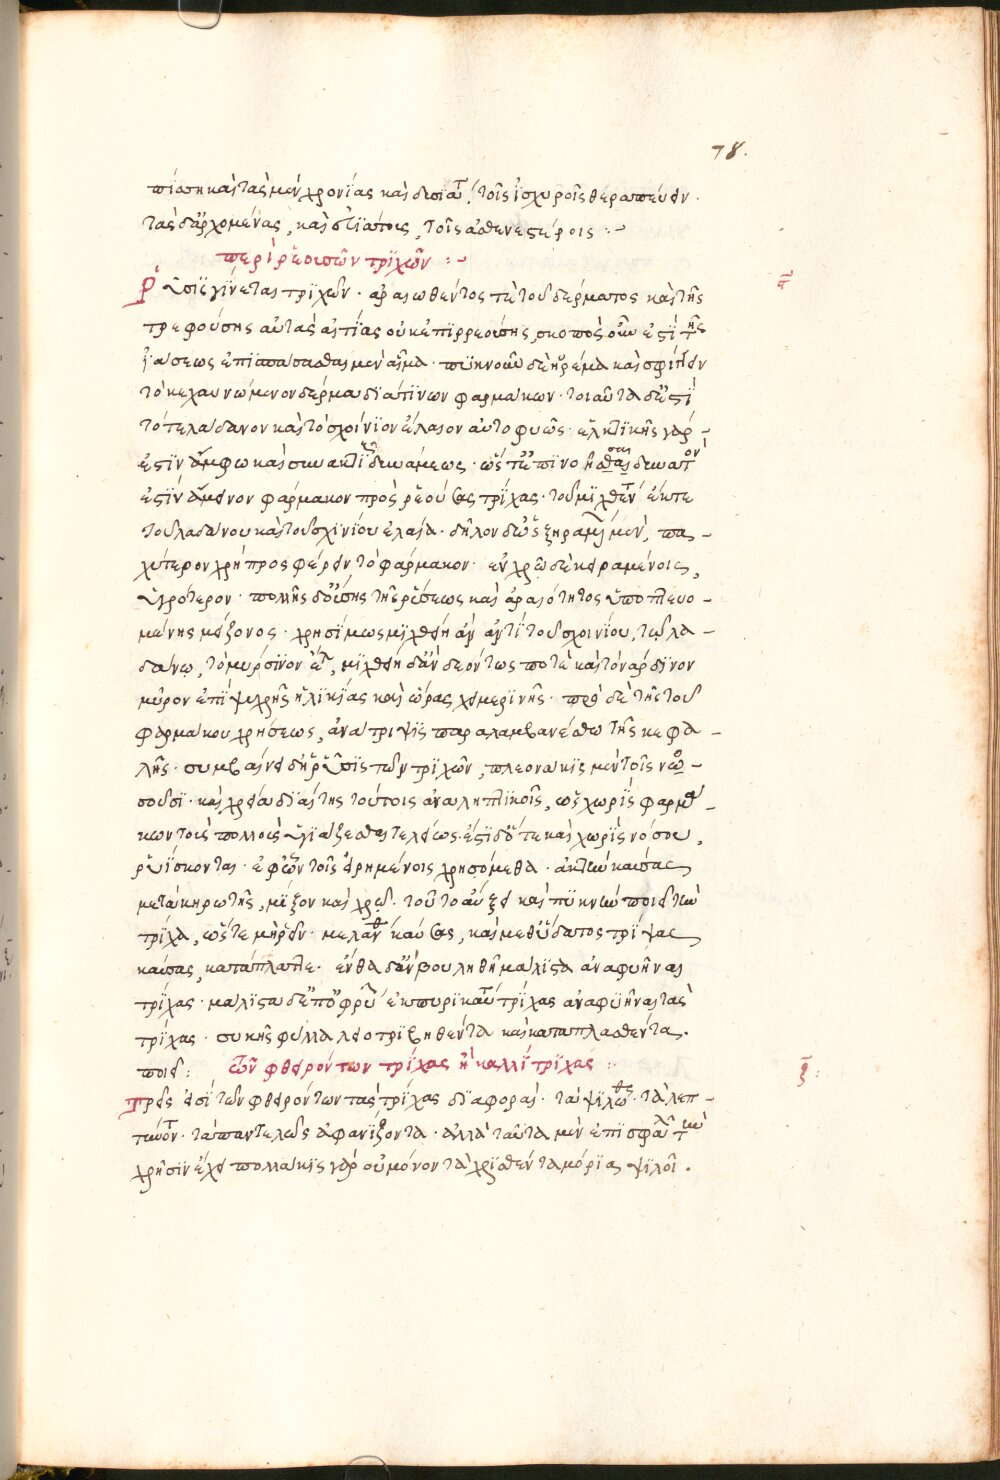 78.
πίαση καὶ τὰς μὲν χρονίας καὶ δυσιάτ, τοῖς ἰσχυροῖς θεραπεύειν.
τὰς δ' ἀρχομένας, καὶ εὐϊάτοις, τοῖς ἀσθενεστέροις :~
περὶ ῥεουσῶν τριχῶν :~
Ῥύσις γίνεται τριχῶν · ἀραιωθέντος τὲ τοῦ δέρματος καὶ τῆς
ε
τρεφούσης αὐτὰς αἰτίας οὐκ ἐπιρρεούσης, σκοπὸς οὖν ἐστὶ τῆς
ἰάσεως ἐπισπάσασθαι μὲν αἷμα · πυκνοῦν δὲ ἠρέμα καὶ σφίγγειν
τὸ κεχαυνωμένον δέρμα διά τινων φαρμάκων · τοιαῦτα δ' ἐστὶ
τότε λάδανον καὶ τὸ σχοίνιον ἔλαιον αὐτοφυῶς · ἑλκτικῆς γάρ
ἐστιν ἄμφω καὶ στυπτικῆς δυνάμεως · δυνατόν
ἐστὶν ἄμεινον φάρμακον πρὸς ῥεούσας τρίχας · τοῦ μιχθέντ ἔκ τε
τοῦ λαδάνου καὶ τοῦ σχινίου ἐλαία · δῆλον δ' ὡς ξηραμέν, πα-
χύτερον χρὴ προσφέρειν τὸ φάρμακον · ἐν χρῷ δὲ κειραμένοις,
ὑγρότερον · πολλῆς δ' οὔσης τῆς ῥεύσεως καὶ ἀραιότητος ὑποπτευο-
μένης μείζονος · χρησίμως μιχθείη ἂν ἀντὶ τοῦ σχοινίου, τῷ λα-
δάνῳ, τὸ μύρσινον ἔλ, μιχθείη δ' ἂν δεόντως ποτὲ καὶ τὸ νάρδινον
μύρον ἐπὶ ψυχρῆς ἡλικίας καὶ ὥρας χειμερινῆς · πρὸ δὲ τῆς τοῦ
φαρμάκου χρήσεως, ἀνάτριψις παραλαμβανέσθω τῆς κεφα-
λῆς · συμβαίνει δὴ ῥύσις τῶν τριχῶν, πλεονάκις μὲν τοῖς νο-
σοῦσι · καὶ χρεία διαίτης τούτοις ἀναληπτικοῖς, ὡς χωρὶς φαρμά-
κων τοὺς πολλοὺς ὑγιάζεσθαι τελείως · ἐστὶ δ' ὅτε καὶ χωρὶς νόσου,
ῥυΐσκονται · ἐφ' ὧν τοῖς εἰρημένοις χρησόμεθα · ἀκτὴν καύσας
μετὰ κηρωτῆς, μίξον καὶ χρεῖ · τοῦτο αὔξει καὶ πυκνὴν ποιεῖ τὴν
τρίχα, ὥστε μὴ ῥεῖν · μελάνθ καύσας, καὶ μεθ' ὕδατος τρίψας
καύσας, κατάπλαττε · ἔνθα δ' ἂν βουληθῇ μάλιστα ἀναφυῆναι
τρίχας · μάλιστα δ' ἐπ' ὀφρύ ἐκ πυρικαύτ τρίχας ἀναφυῆναι τὰς
τρίχας · συκῆς φύλλα λειοτριβηθέντα καὶ καταπλασθέντα.
ποιεῖ :
τῶν φθειρόντων τρίχας ἢ καλλίτριχας :
ξ :
Τρεῖς εἰσὶ τῶν φθειρόντων τὰς τρίχας διαφοραί · τὰ ψιλωθ · τὰ λεπ-
τυόντ · τὰ παντελῶς ἀφανίζοντα · ἀλλὰ ταῦτα μὲν ἐπισφαλ τὴν
χρῆσιν ἔχει πολλάκις γὰρ οὐ μόνον τὰ χρισθέντα μόρια ψιλοῖ .